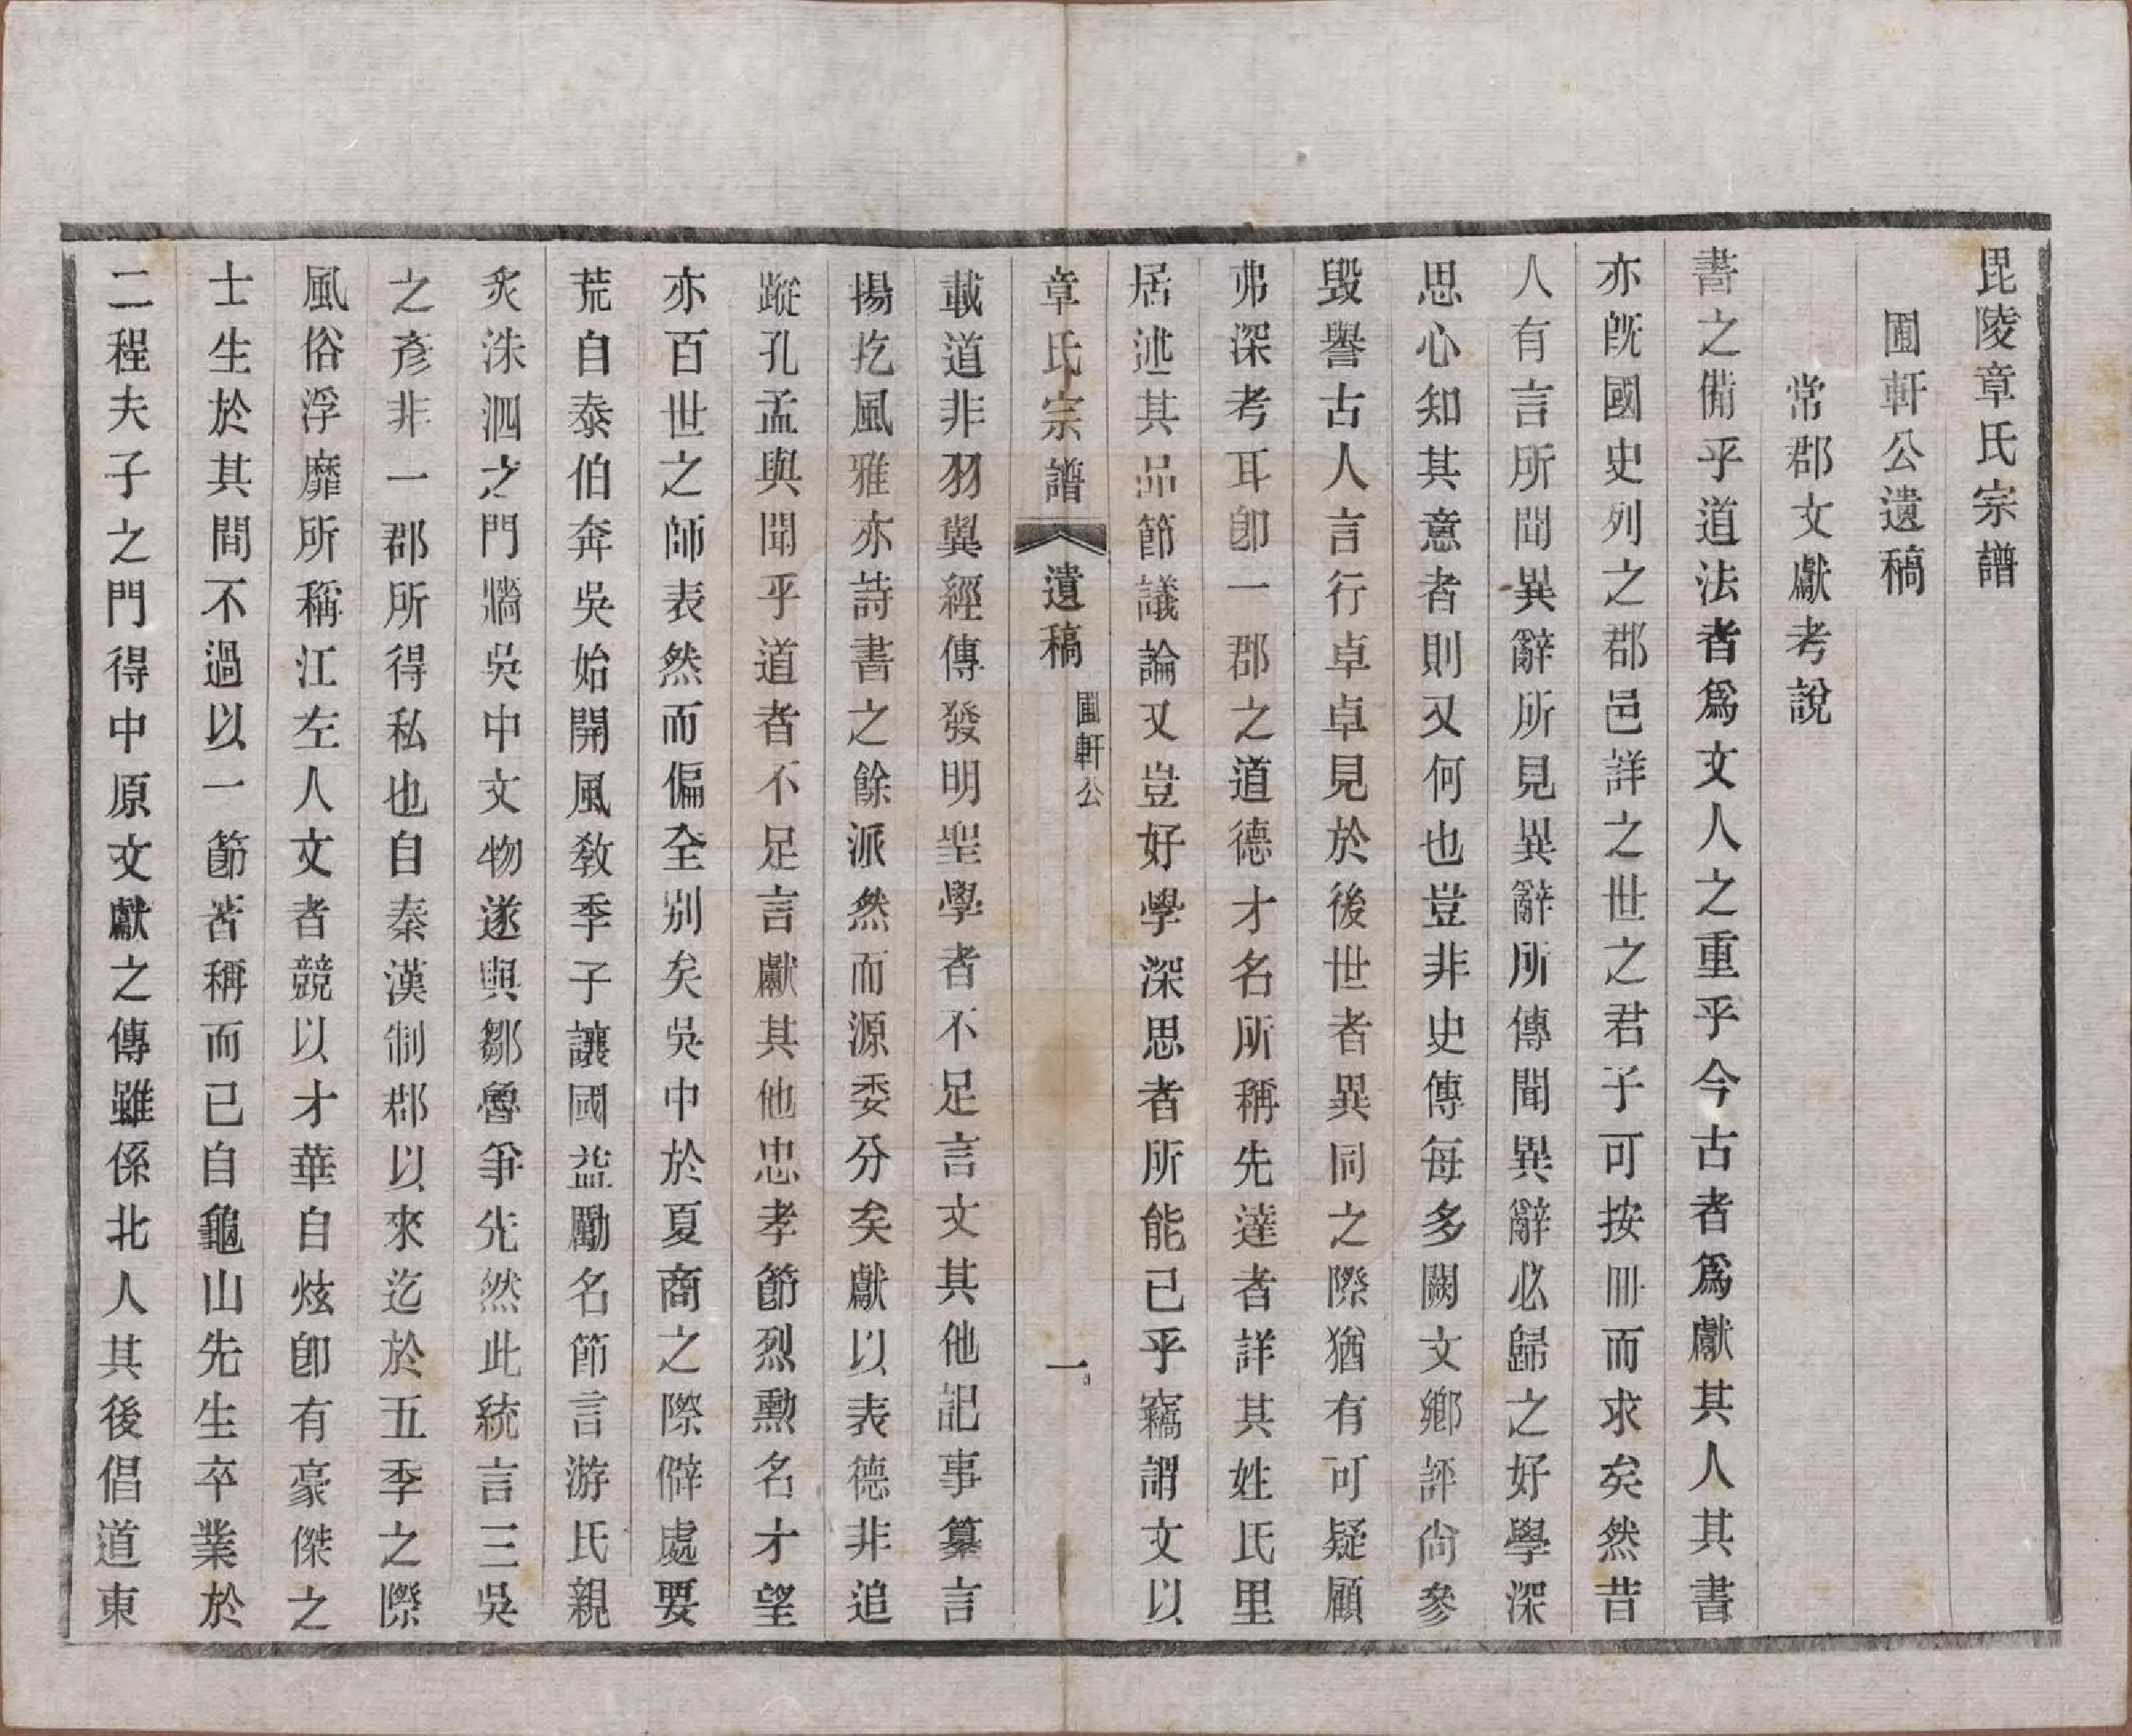 毘陵章氏宗譜
圃軒公遺稿
常郡文獻考說
書之備乎道法者爲文人之重乎今古者爲獻其人其書
亦旣國史列之郡邑詳之世之君子可按冊而求矣然昔
人有言所聞異辭所見異辭所傳聞異辭必歸之好學深
思心知其意者則又何也豈非史傳每多闕文鄉評尙參
毀譽古人言行卓卓見於後世者異同之際猶有可疑顧
弗深考耳卽一郡之道德才名所稱先達者詳其姓氏里
居述其品節議論又豈好學深思者所能已乎竊謂文以
章氏宗譜 遺稿 圃軒公 一
載道非羽翼經傳發明聖學者不足言文其他記事纂言
揚扢風雅亦詩書之餘派然而源委分矣獻以表德非追
蹤孔孟與聞乎道者不足言獻其他忠孝節烈勲名才望
亦百世之師表然而偏全别矣吳中於夏商之際僻處要
荒自泰伯奔吳始開風敎季子讓國益勵名節言游氏親
炙洙泗之門牆吳中文物遂與鄒魯爭先然此統言三吳
之彥非一郡所得私也自秦漢制郡以來迄於五季之際
風俗浮靡所稱江左人文者競以才華自炫卽有豪傑之
士生於其間不過以一節著稱而已自龜山先生卒業於
二程夫子之門得中原文獻之傳雖係北人其後倡道東